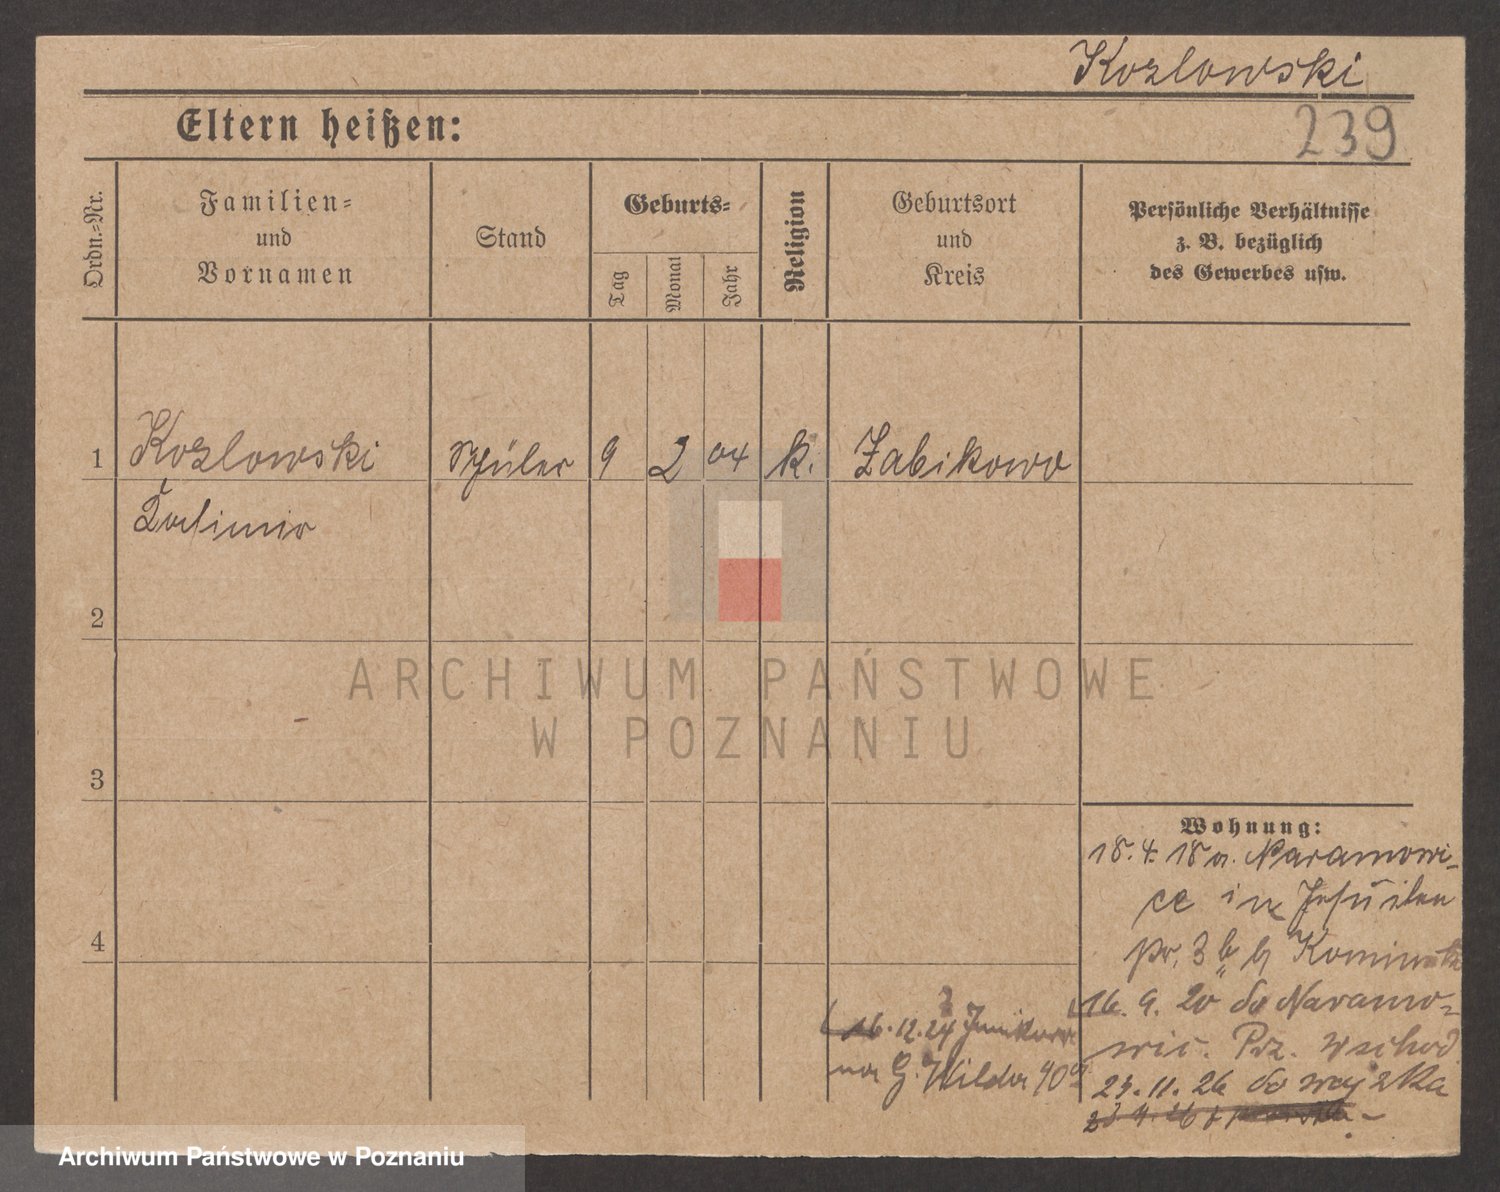 Kozlowski
239
Eltern heißen:
Ordn.-Nr.
Familien-
und
Vornamen
Stand
Geburts-
Tag
Monat
Jahr
Religion
Geburtsort
und
Kreis
Persönliche Verhältnisse
z. B. bezüglich
des Gewerbes usw.
1 Kozlowski Schüler 9 2 04 k. Zabikowo
2
3
4
Wohnung:
18. 4. 18 a. Naramowi-
ce in
pr. 3 b b
16. 9. 20 do Naramo-
wic. Prz. Wschod.
23. 11. 26 do wojska
16. 12. 24 Junikowo
na G. Wilda 40a
ARCHIWUM PAŃSTWOWE
W POZNANIU
Archiwum Państwowe w Poznaniu